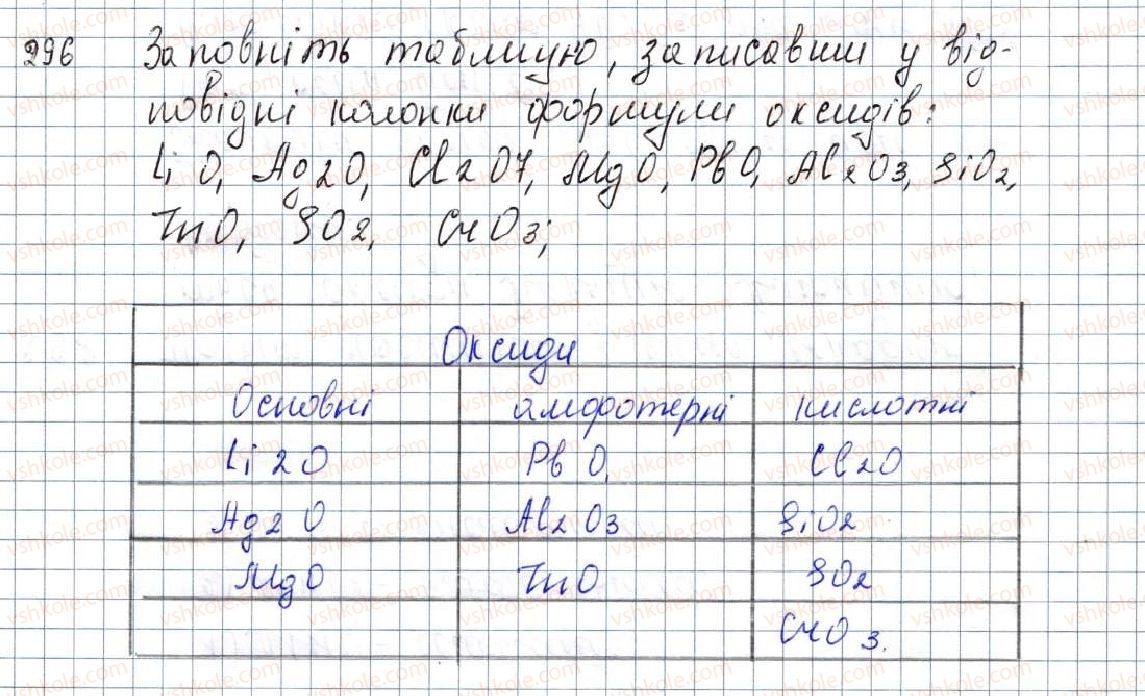 296 Заповніть таблицю, записавши у від-
повідні колонки формули оксидів:
Li O, Ag2O, Cl2O7, MgO, PbO, Al2O3, SiO2,
ZnO, SO2, CrO3;
Оксиди
Основні амфотерні кислотні
Li2O PbO, Cl2O
Ag2O Al2O3 SiO2
MgO ZnO SO2
CrO3.